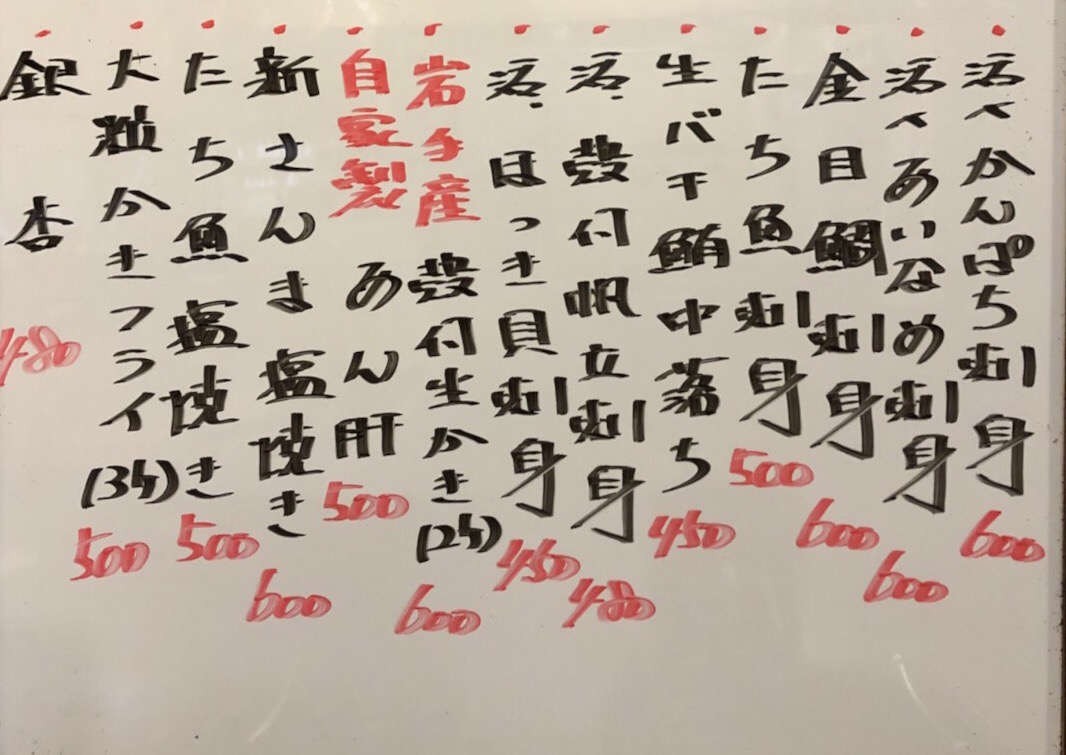 活〆かんぱち刺身 600
活〆あいなめ刺身 600
金目鯛刺身 600
たち魚刺身 500
生バチ鮪中落ち 450
活、殻付帆立刺身 480
活、ほっき貝刺身 450
岩手産 殻付生かき(2ケ) 600
自家製 あん肝 500
新さんま塩焼き 600
たち魚塩焼き 500
大粒かきフライ(3ケ) 500
銀杏 480